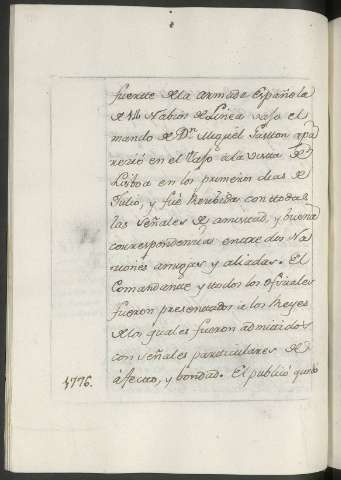 fuerte de la armada Española
de Nabios de Linea vajo el
mando de Dn. Miguel Gaston apa
reció en el Tajo a la vista de
Lisboa en los primeros dias de
Julio, y fué Recibida con todas
las Señales de amistad, y buena
correspondencia entre dos Na
ciones amigas y aliadas. El
Comandante y todos los ofiziales
fueron presentados a los Reyes
de los quales fueron admitidos
con señales particulares de
afecto, y bondad. El publicó
1776.